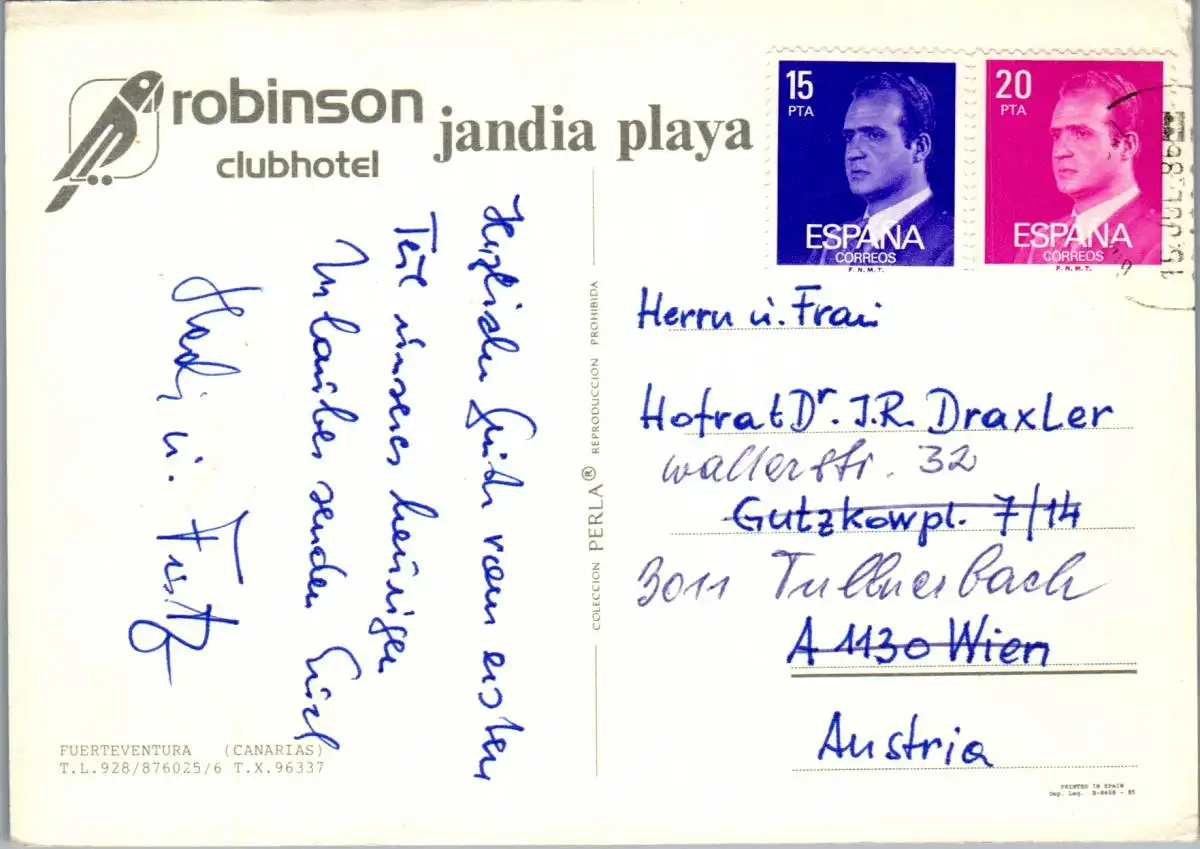 robinson
clubhotel
jandia playa
15
PTA
ESPAÑA
CORREOS
F.N.M.T.
20
PTA
ESPAÑA
CORREOS
F.N.M.T.
Herzliche Grüße vom ersten
Teil unseres heurigen
Urlaubes senden Euch
Hedi u. Fritz
COLECCION PERLA® REPRODUCCION PROHIBIDA
Herrn u. Frau
Hofrat Dr. J.R. Draxler
Wallerstr. 32
Gutzkowpl. 7/14
3011 Tullnerbach
A 1130 Wien
Austria
FUERTEVENTURA (CANARIAS)
T.L.928/876025/6 T.X.96337
PRINTED IN SPAIN
Dep. Leg. B-8408 - 85